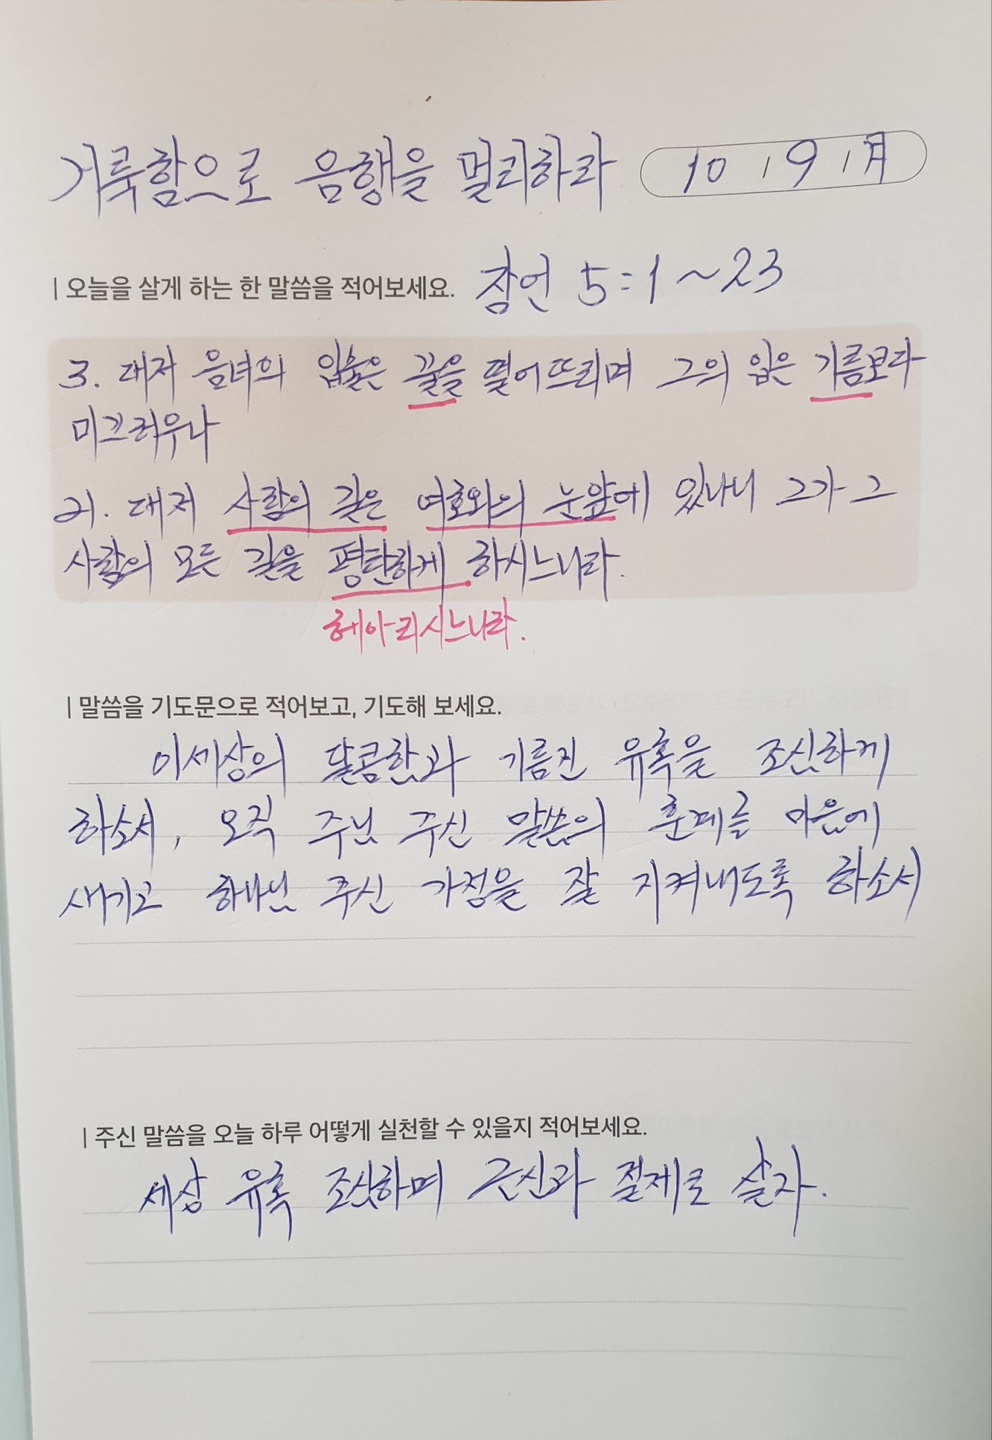 거룩함으로 음행을 멀리하라 10 / 9 / 月
| 오늘을 살게 하는 한 말씀을 적어보세요. 잠언 5:1~23
3. 대저 음녀의 입술은 꿀을 떨어뜨리며 그의 입은 기름보다
미끄러우나
21. 대저 사람의 길은 여호와의 눈앞에 있나니 그가 그
사람의 모든 길을 평탄하게 하시느니라.
헤아리시느니라.
| 말씀을 기도문으로 적어보고, 기도해 보세요.
이세상의 달콤함과 기름진 유혹을 조심하게
하소서, 오직 주님 주신 말씀의 훈계를 마음에
새기고 하나님 주신 가정을 잘 지켜내도록 하소서
| 주신 말씀을 오늘 하루 어떻게 실천할 수 있을지 적어보세요.
세상 유혹 조심하며 근신과 절제로 살자.